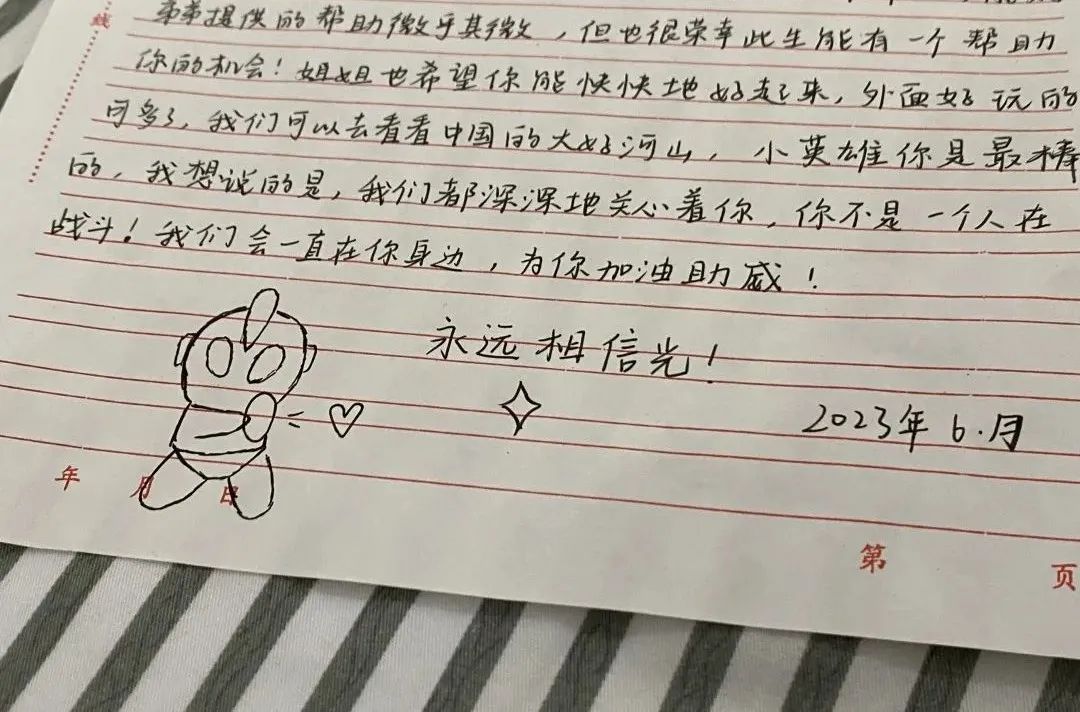 线
提供的帮助微乎其微，但也很荣幸此生能有一个帮助
你的机会！姐姐也希望你能快快地好起来，外面好玩的
可多了，我们可以去看看中国的大好河山，小英雄你是最棒
的，我想说的是，我们都深深地关心着你，你不是一个人在
战斗！我们会一直在你身边，为你加油助威！
永远相信光！
2023年6.月
年 月 日
第 页